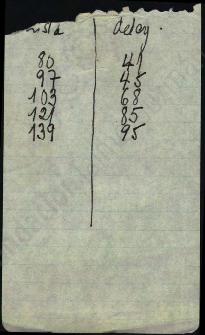 delay.
80 41
97 45
103 68
121 85
139 95